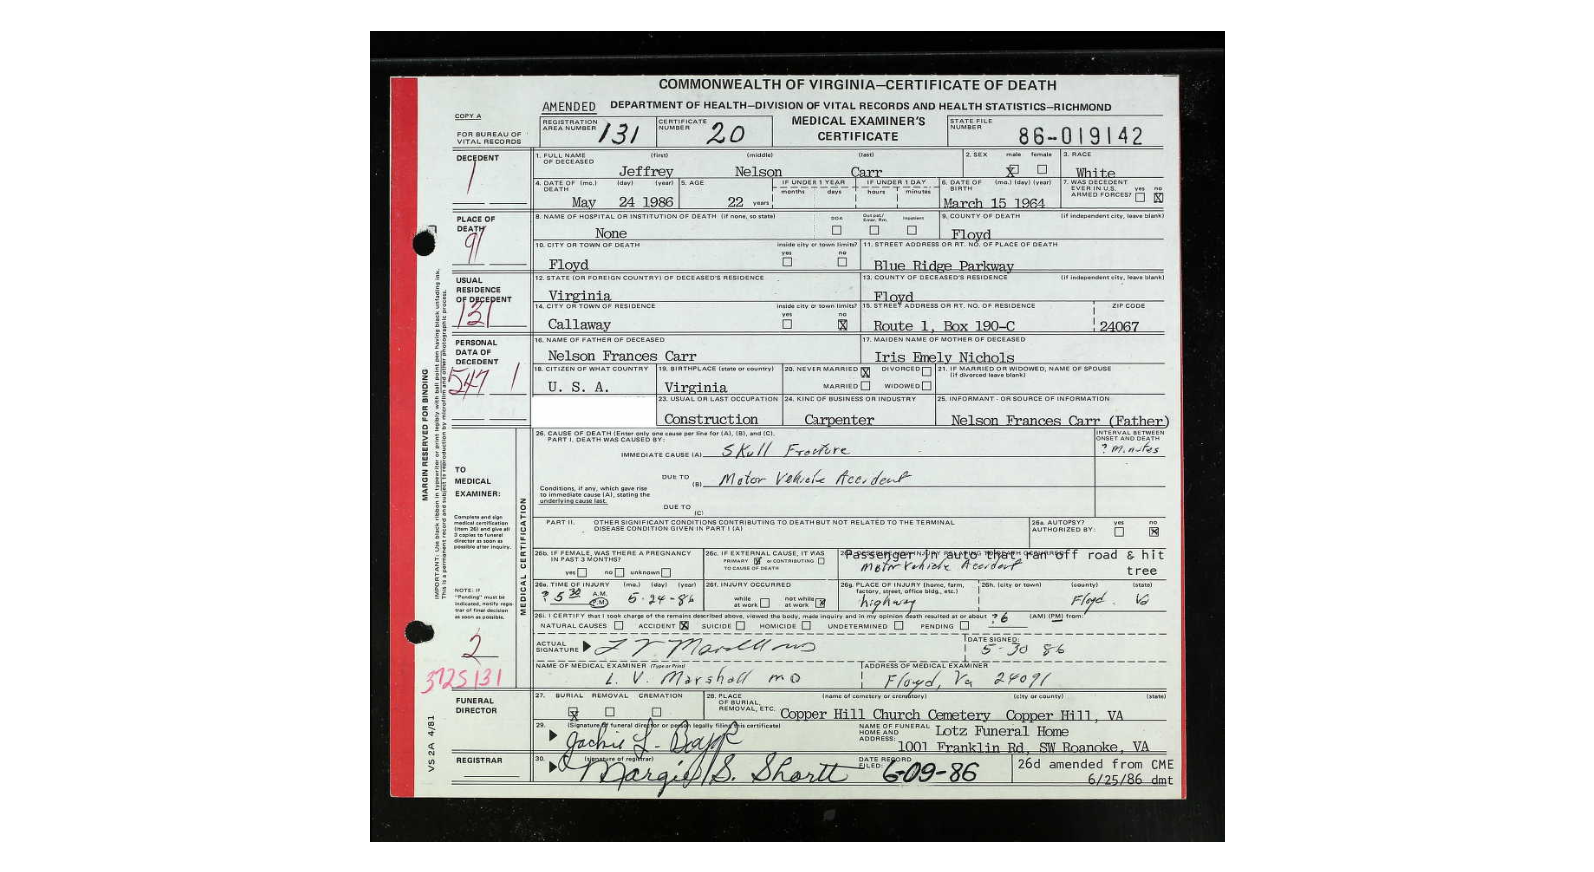 COMMONWEALTH OF VIRGINIA—CERTIFICATE OF DEATH
AMENDED DEPARTMENT OF HEALTH—DIVISION OF VITAL RECORDS AND HEALTH STATISTICS—RICHMOND
COPY A
FOR BUREAU OF VITAL RECORDS
REGISTRATION AREA NUMBER 131
CERTIFICATE NUMBER 20
MEDICAL EXAMINER'S CERTIFICATE
STATE FILE NUMBER 86-019142
DECEDENT
1
1. FULL NAME OF DECEASED (first) (middle) (last)
Jeffrey Nelson Carr
2. SEX male X female
3. RACE
White
4. DATE OF DEATH (mo.) (day) (year)
May 24 1986
5. AGE
22 years
IF UNDER 1 YEAR months days
IF UNDER 1 DAY hours minutes
6. DATE OF BIRTH (mo.) (day) (year)
March 15 1964
7. WAS DECEDENT EVER IN U.S. ARMED FORCES? yes no X
PLACE OF DEATH
91
8. NAME OF HOSPITAL OR INSTITUTION OF DEATH (if none, so state)
None
DOA Out pat./Emer. Rm. Inpatient
9. COUNTY OF DEATH (if independent city, leave blank)
Floyd
10. CITY OR TOWN OF DEATH inside city or town limits? yes no
Floyd
11. STREET ADDRESS OR RT. NO. OF PLACE OF DEATH
Blue Ridge Parkway
USUAL RESIDENCE OF DECEDENT
131
12. STATE (OR FOREIGN COUNTRY) OF DECEASED'S RESIDENCE
Virginia
13. COUNTY OF DECEASED'S RESIDENCE (if independent city, leave blank)
Floyd
14. CITY OR TOWN OF RESIDENCE inside city or town limits? yes no X
Callaway
15. STREET ADDRESS OR RT. NO. OF RESIDENCE ZIP CODE
Route 1, Box 190-C 24067
PERSONAL DATA OF DECEDENT
547 1
16. NAME OF FATHER OF DECEASED
Nelson Frances Carr
17. MAIDEN NAME OF MOTHER OF DECEASED
Iris Emely Nichols
18. CITIZEN OF WHAT COUNTRY
U. S. A.
19. BIRTHPLACE (state or country)
Virginia
20. NEVER MARRIED X DIVORCED
MARRIED WIDOWED
21. IF MARRIED OR WIDOWED, NAME OF SPOUSE (if divorced leave blank)
23. USUAL OR LAST OCCUPATION
Construction
24. KIND OF BUSINESS OR INDUSTRY
Carpenter
25. INFORMANT - OR SOURCE OF INFORMATION
Nelson Frances Carr (Father)
MARGIN RESERVED FOR BINDING
IMPORTANT: Use black ribbon in typewriter or print legibly with ball point pen having black unfading ink.
This is a permanent record and subject to reproduction by microfilm and other photographic process.
MEDICAL CERTIFICATION
TO MEDICAL EXAMINER:
Complete and sign medical certification (item 26) and give all 3 copies to funeral director as soon as possible after inquiry.
NOTE: If "Pending" must be indicated, notify registrar of final decision as soon as possible.
26. CAUSE OF DEATH (Enter only one cause per line for (A), (B), and (C).
PART I. DEATH WAS CAUSED BY:
INTERVAL BETWEEN ONSET AND DEATH
IMMEDIATE CAUSE (A) Skull Fracture ? minutes
DUE TO (B) Motor Vehicle Accident
Conditions, if any, which gave rise to immediate cause (A), stating the underlying cause last.
DUE TO (C)
PART II. OTHER SIGNIFICANT CONDITIONS CONTRIBUTING TO DEATH BUT NOT RELATED TO THE TERMINAL DISEASE CONDITION GIVEN IN PART I (A)
26a. AUTOPSY? AUTHORIZED BY: yes no X
26b. IF FEMALE, WAS THERE A PREGNANCY IN PAST 3 MONTHS? yes no unknown
26c. IF EXTERNAL CAUSE, IT WAS PRIMARY X or CONTRIBUTING TO CAUSE OF DEATH
Passenger in auto that ran off road & hit tree
Motor Vehicle Accident
26e. TIME OF INJURY (mo.) (day) (year)
? 5 30 A.M. P.M. 5-24-86
26f. INJURY OCCURRED while at work not while at work X
26g. PLACE OF INJURY (home, farm, factory, street, office bldg., etc.)
highway
26h. (city or town) (county) (state)
Floyd Va
26i. I CERTIFY that I took charge of the remains described above, viewed the body, made inquiry and in my opinion death resulted at or about ? 6 (AM) (PM) from:
NATURAL CAUSES ACCIDENT X SUICIDE HOMICIDE UNDETERMINED PENDING
ACTUAL SIGNATURE
DATE SIGNED:
5-30 86
NAME OF MEDICAL EXAMINER (Type or Print)
L. V. Marshall MD
ADDRESS OF MEDICAL EXAMINER
Floyd, Va 24091
2
3725131
FUNERAL DIRECTOR
27. BURIAL X REMOVAL CREMATION
28. PLACE OF BURIAL, REMOVAL, ETC. (name of cemetery or crematory) (city or county) (state)
Copper Hill Church Cemetery Copper Hill, VA
29. (Signature of funeral director or person legally filing this certificate)
Jackie L.
NAME OF FUNERAL HOME AND ADDRESS:
Lotz Funeral Home
1001 Franklin Rd, SW Roanoke, VA
REGISTRAR
30. (signature of registrar)
Margie S. Shortt
DATE RECORD FILED: 6-09-86
26d amended from CME
6/25/86 dmt
VS 2A 4/81